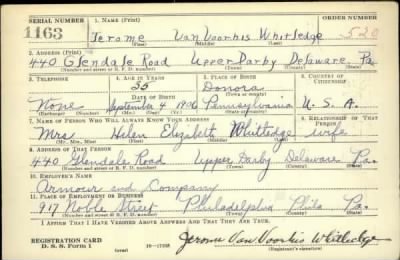 SERIAL NUMBER 1. NAME (Print) ORDER NUMBER
1163 Jerome Van Voorhis Whitledge 520
(First) (Middle) (Last)
2. ADDRESS (Print)
440 Glendale Road Upper Darby Delaware Pa.
(Number and street or R. F. D. number) (Town) (County) (State)
3. TELEPHONE 4. AGE IN YEARS 5. PLACE OF BIRTH 6. COUNTRY OF CITIZENSHIP
35 Donora
DATE OF BIRTH (Town or county)
None September 4 1906 Pennsylvania U. S. A.
(Exchange) (Number) (Mo.) (Day) (Yr.) (State or country)
7. NAME OF PERSON WHO WILL ALWAYS KNOW YOUR ADDRESS 8. RELATIONSHIP OF THAT PERSON
Mrs Helen Elizabeth Whitledge wife
(Mr., Mrs., Miss) (First) (Middle) (Last)
9. ADDRESS OF THAT PERSON
440 Glendale Road Upper Darby Delaware Pa.
(Number and street or R. F. D. number) (Town) (County) (State)
10. EMPLOYER'S NAME
Armour and Company
11. PLACE OF EMPLOYMENT OR BUSINESS
917 Noble Street Philadelphia Phila Pa.
(Number and street or R. F. D. number) (Town) (County) (State)
I AFFIRM THAT I HAVE VERIFIED ABOVE ANSWERS AND THAT THEY ARE TRUE.
REGISTRATION CARD
D. S. S. Form 1 (over) 16—17105 Jerome Van Voorhis Whitledge
(Registrant's signature)